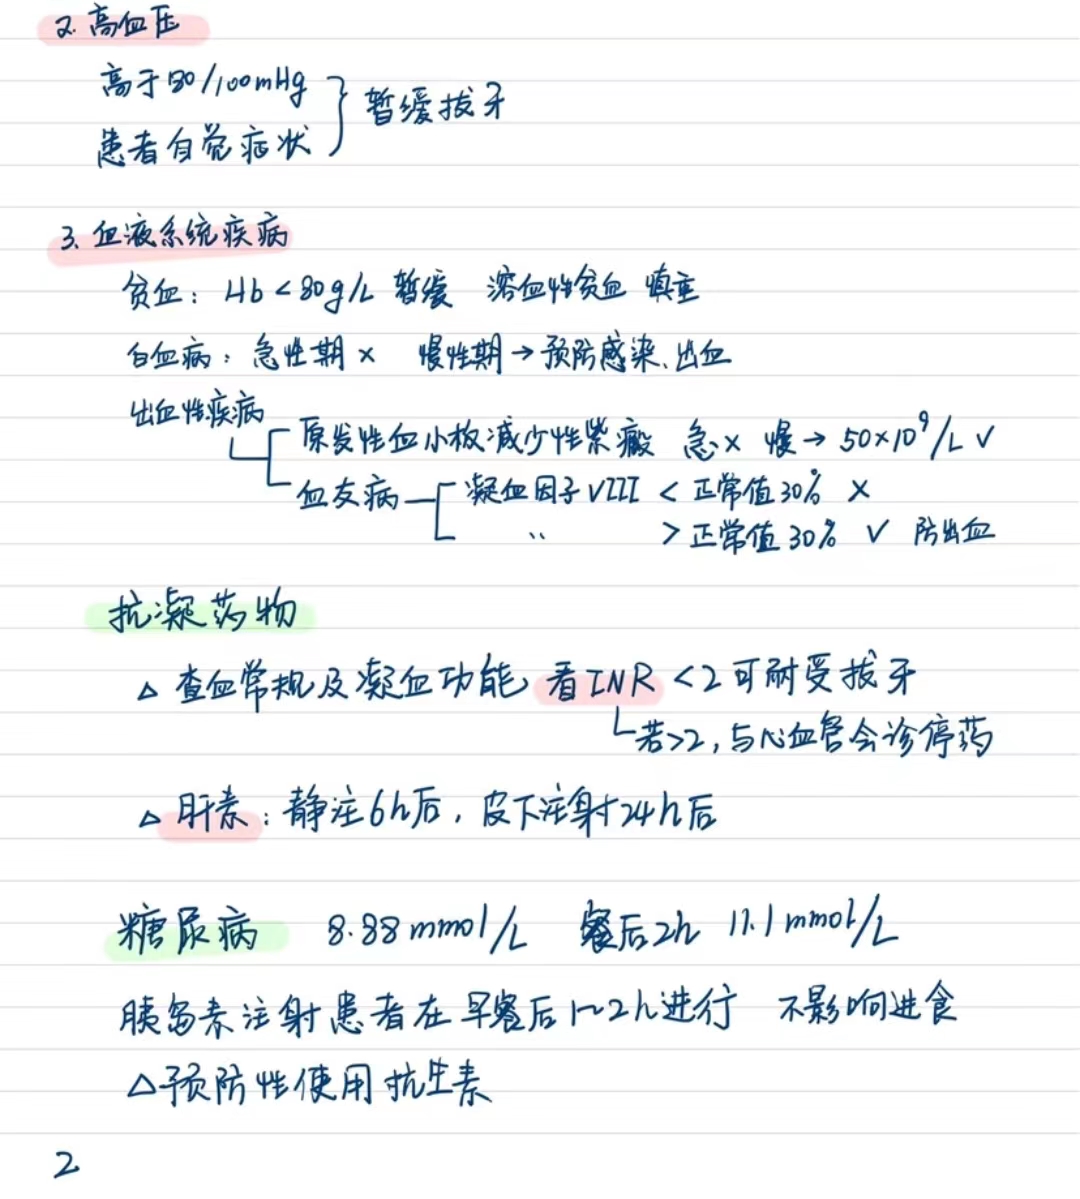 2. 高血压
高于180/100mHg
患者自觉症状 } 暂缓拔牙
3. 血液系统疾病
贫血：Hb<80g/L 暂缓 溶血性贫血 慎重
白血病：急性期× 慢性期→预防感染、出血
出血性疾病
原发性血小板减少性紫癜 急× 慢→50×10⁹/L √
血友病 凝血因子VIII < 正常值30% ×
〃 > 正常值30% √ 防出血
抗凝药物
△ 查血常规及凝血功能，看INR <2可耐受拔牙
若>2，与心血管会诊停药
△ 肝素：静注6h后，皮下注射24h后
糖尿病 8.88mmol/L 餐后2h 11.1mmol/L
胰岛素注射患者在早餐后1~2h进行 不影响进食
△预防性使用抗生素
2